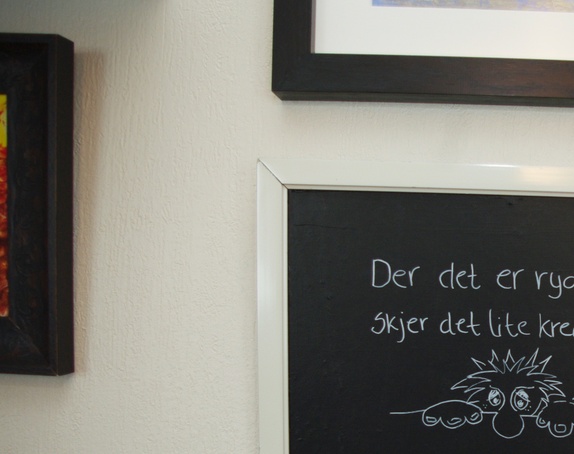 Der det er ryd
skjer det lite kre